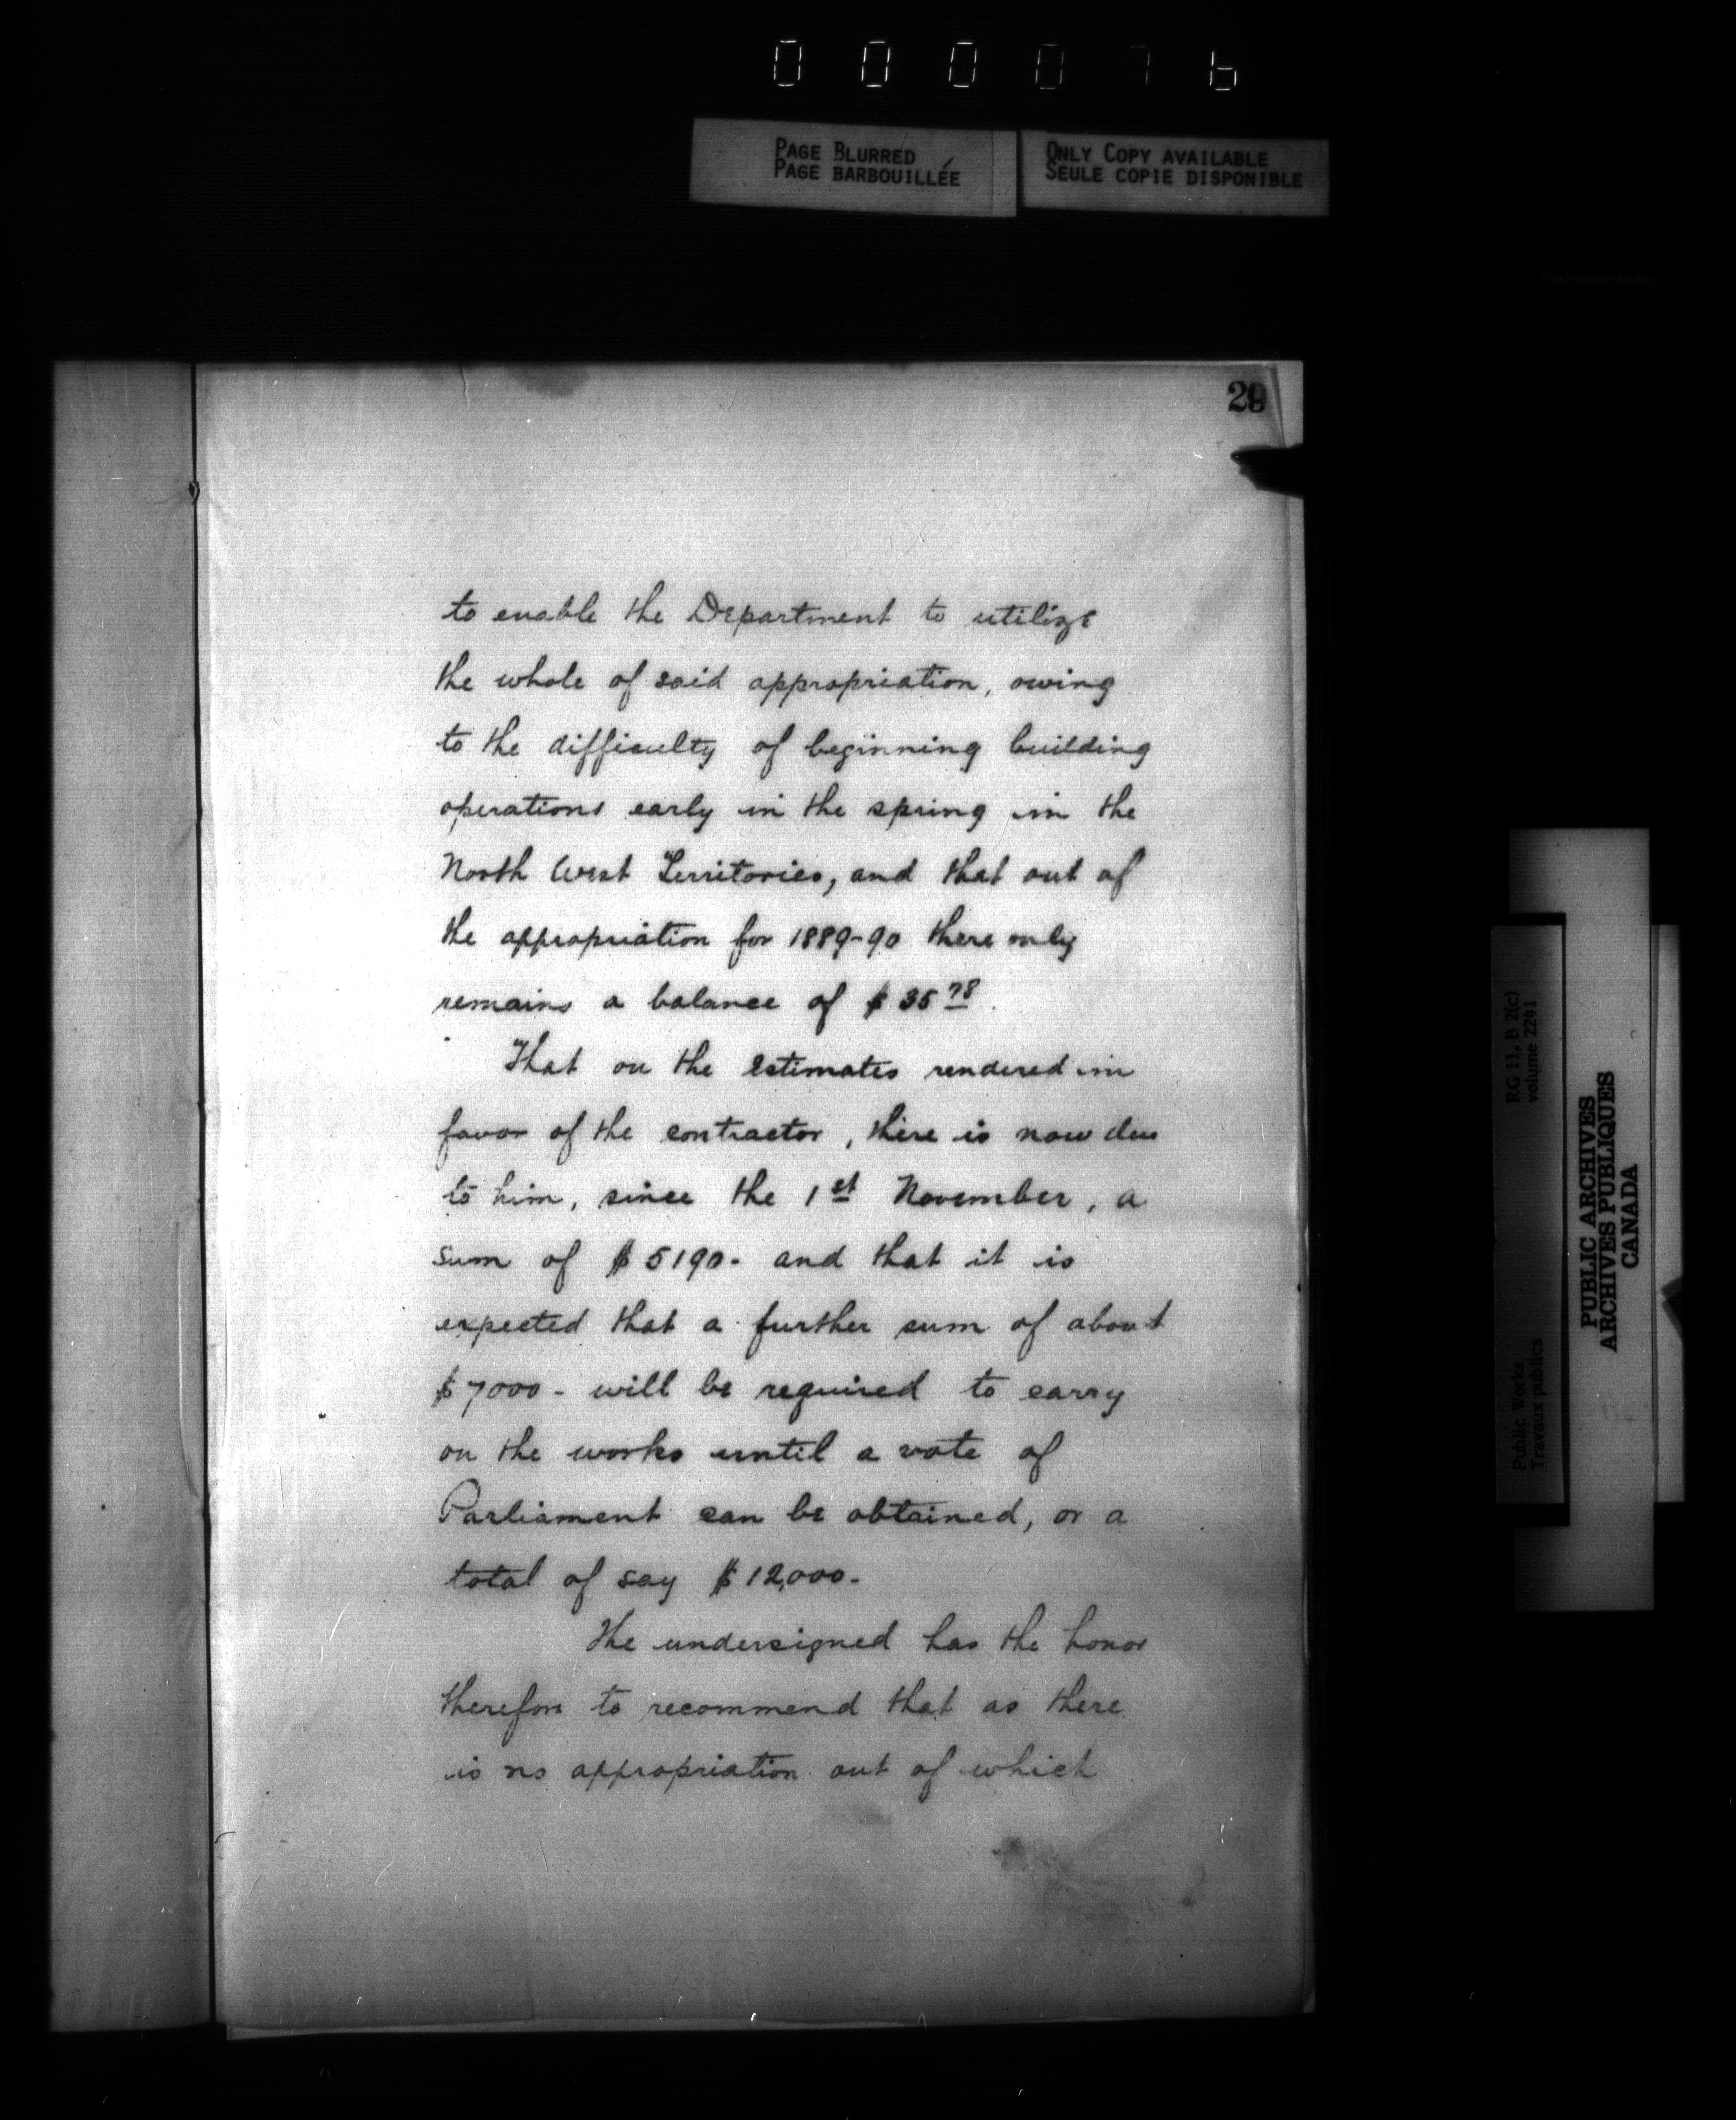 0 0 0 0 7 6
PAGE BLURRED
PAGE BARBOUILLÉE
ONLY COPY AVAILABLE
SEULE COPIE DISPONIBLE
to enable the Department to utilize
the whole of said appropriation, owing
to the difficulty of beginning building
operations early in the spring in the
North West Territories, and that out of
the appropriation for 1889-90 there only
remains a balance of $35 78.
That on the Estimates rendered in
favor of the contractor, there is now due
to him, since the 1st November, a
sum of $5190- and that it is
expected that a further sum of about
$7000- will be required to carry
on the works until a vote of
Parliament can be obtained, or a
total of say $12,000-
The undersigned has the honor
therefore to recommend that as there
is no appropriation out of which
RG 11, B 2(c)
volume 2241
Public Works
Travaux publics
PUBLIC ARCHIVES
ARCHIVES PUBLIQUES
CANADA